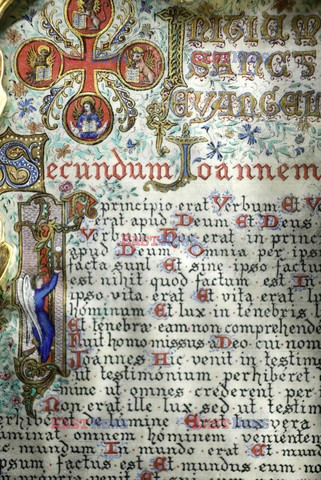 INITIUM
SANCT
EVANGEL
Secundum Ioannem
In principio erat Verbum Et V
erat apud Deum Et Deus
Verbum Hoc erat in princ
apud Deum Omnia per ips
facta sunt Et sine ipso factu
est nihil quod factum est In
ipso vita erat Et vita erat l
hominum Et lux in tenebris
Et tenebræ eam non comprehende
Fuit homo missus a Deo cui nom
Joannes venit in testim
ut testimonium perhiberet
mine ut omnes crederent per
Non erat ille lux sed ut testim
lumine Erat lux vera
luminat omnem hominem venientem
mundum In mundo erat Et m
ipsum factus est Et mundus eum non